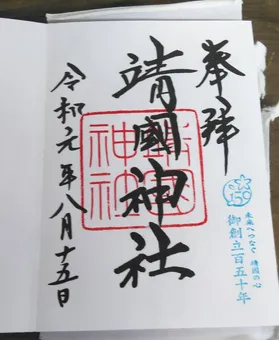 奉拝
靖國神社
靖國神社
令和元年八月十五日
150
未来へつなぐ 靖國の心
御創立百五十年